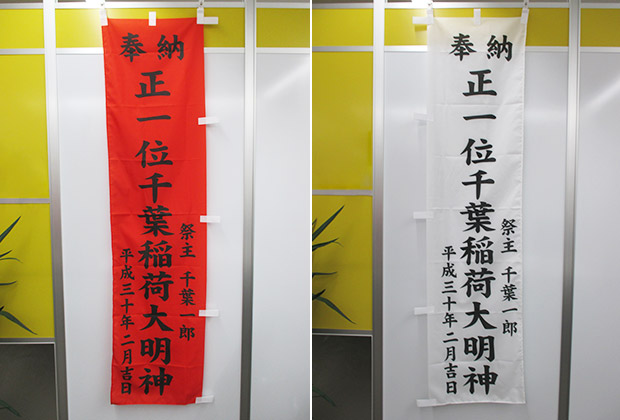 奉納
正一位千葉稲荷大明神
祭主 千葉一郎
平成三十年二月吉日
奉納
正一位千葉稲荷大明神
祭主 千葉一郎
平成三十年二月吉日